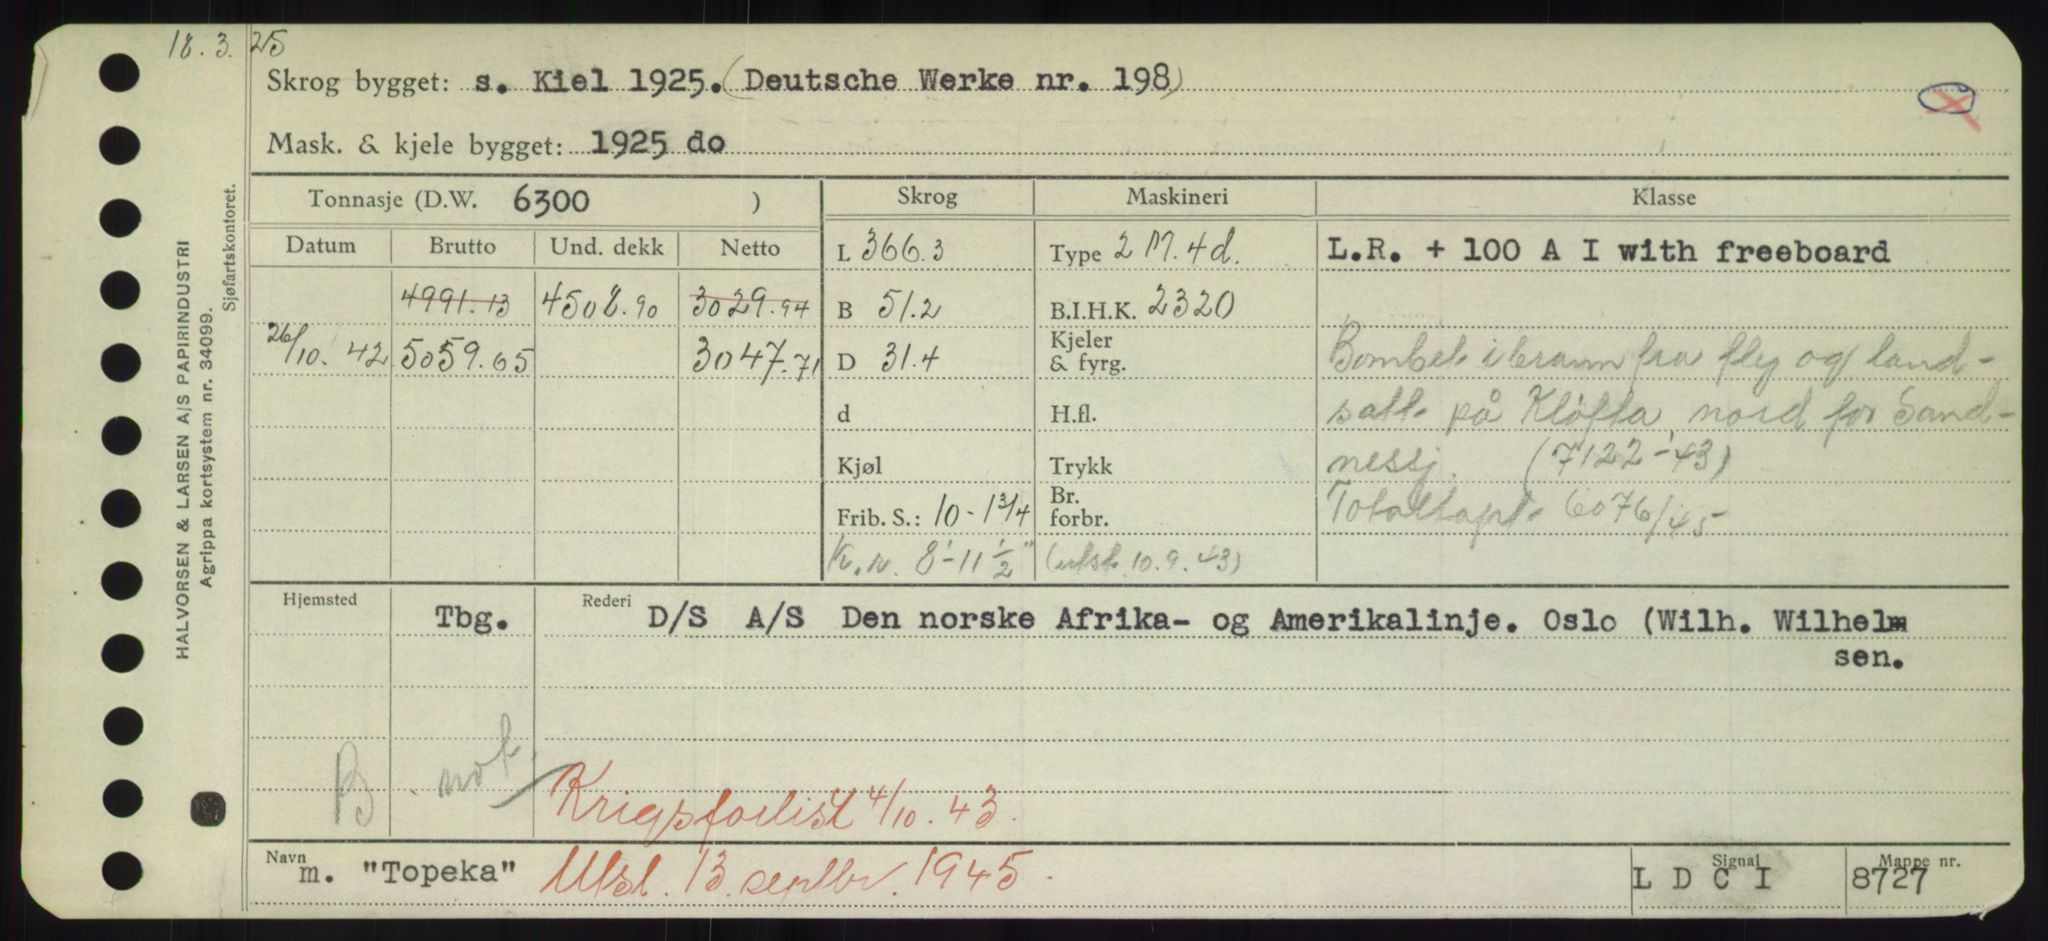 18.3.25
Skrog bygget: s. Kiel 1925. (Deutsche Werke nr. 198)
Mask. & kjele bygget: 1925 do
Tonnasje (D.W. 6300 ) Skrog Maskineri Klasse
Datum Brutto Und. dekk Netto L 366.3 Type 2 M. 4d. L.R. + 100 A I with freeboard
4991.13 4508.90 3029.94 B 51.2 B.I.H.K. 2320
26/10.42 5059.65 3047.71 D 31.4 Kjeler & fyrg. Bombet i brann fra fly og land-
d H.fl. satt på Kløfta, nord for Sand-
Kjøl Trykk nessj. (7122-43)
Frib. S.: 10-1 3/4 Br. forbr. Totaltapt 6076/45
K.n. 8'-11 1/2" (utst. 10.9.43)
Hjemsted Tbg. Rederi D/S A/S Den norske Afrika- og Amerikalinje. Oslo (Wilh. Wilhelm
sen.
B. not.
Krigsforlist 4/10.43.
Navn m. "Topeka" Utsl. 13. septbr. 1945. Signal L D C I Mappe nr. 8727
HALVORSEN & LARSEN A/S PAPIRINDUSTRI
Agrippa kortsystem nr. 34099.
Sjøfartskontoret.